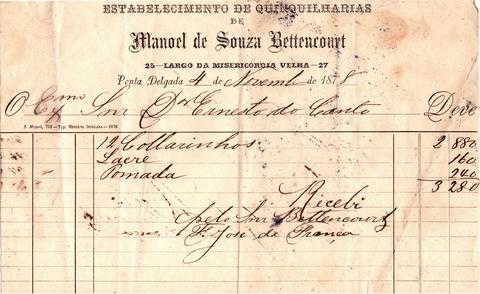 ESTABELECIMENTO DE QUINQUILHARIAS
DE
Manoel de Souza Bettencourt
25—LARGO DA MISERICORDIA VELHA—27
Ponta Delgada 4 de Novembr de 1878
O Exmo Snr Dor Ernesto do Canto Deve
S. Miguel, 703—Typ. MINERVA INSULANA—1876
12 Collarinhos 2 880
Lacre 160
Pomada 240
3 280
Recebi
pelo Snr Bettencourt
F. José de França